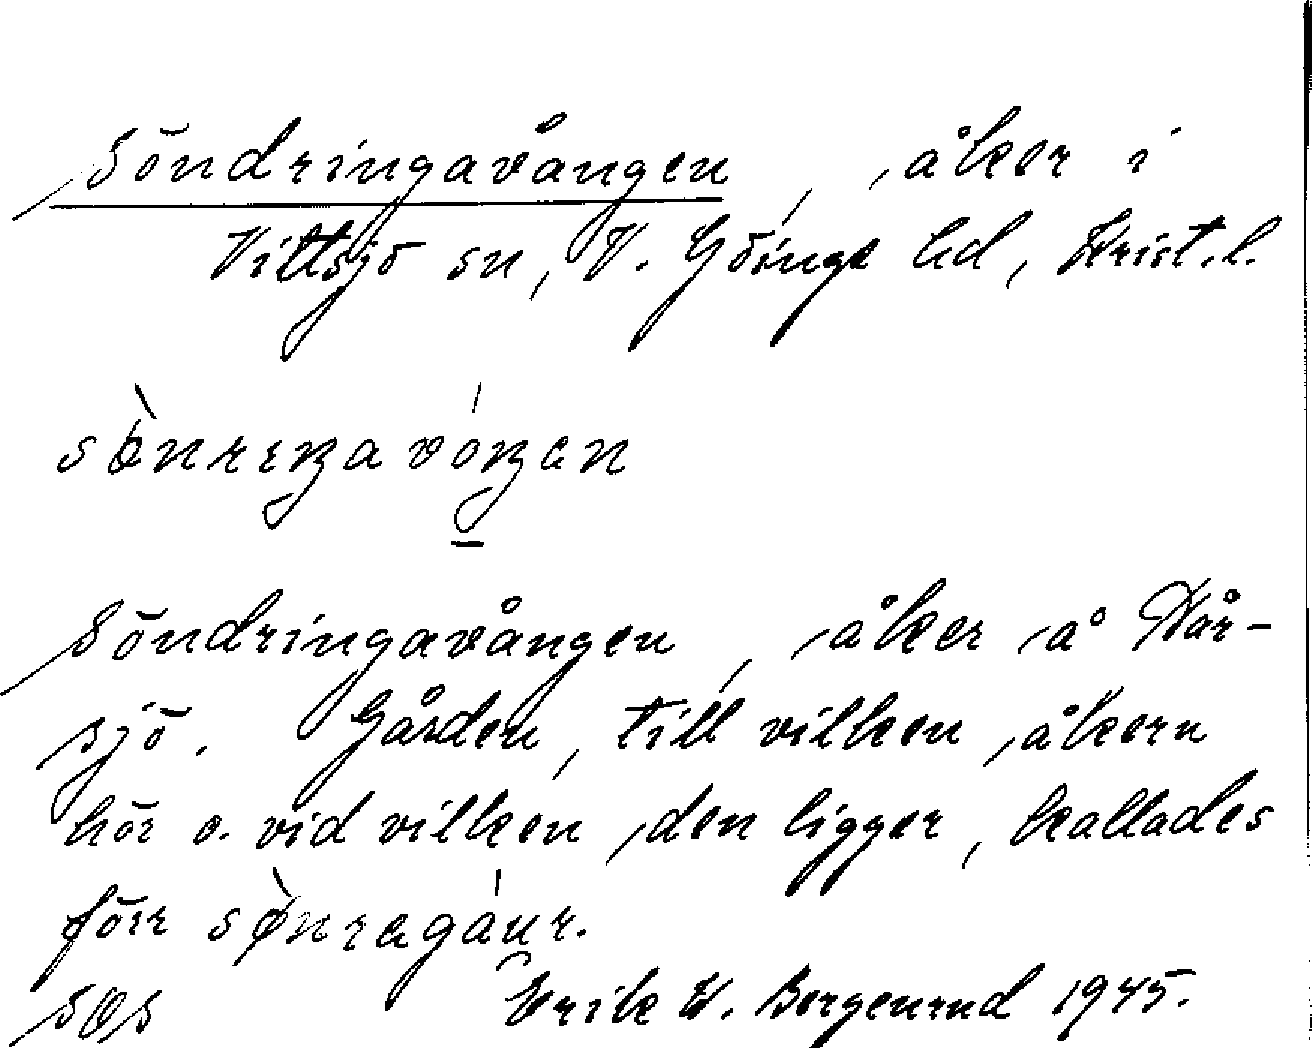 Söndringavången, åker i
Vittsjö sn, V. Göinge hd, Krist. l.
sø̀nrıŋavóŋən
Söndringavången, åker å Vår-
sjö. Gården, till vilken åkern
hör o. vid vilken den ligger, kallades
förr sø̀nrəgáur.
SOS Erik H. Bergenrud 1945.